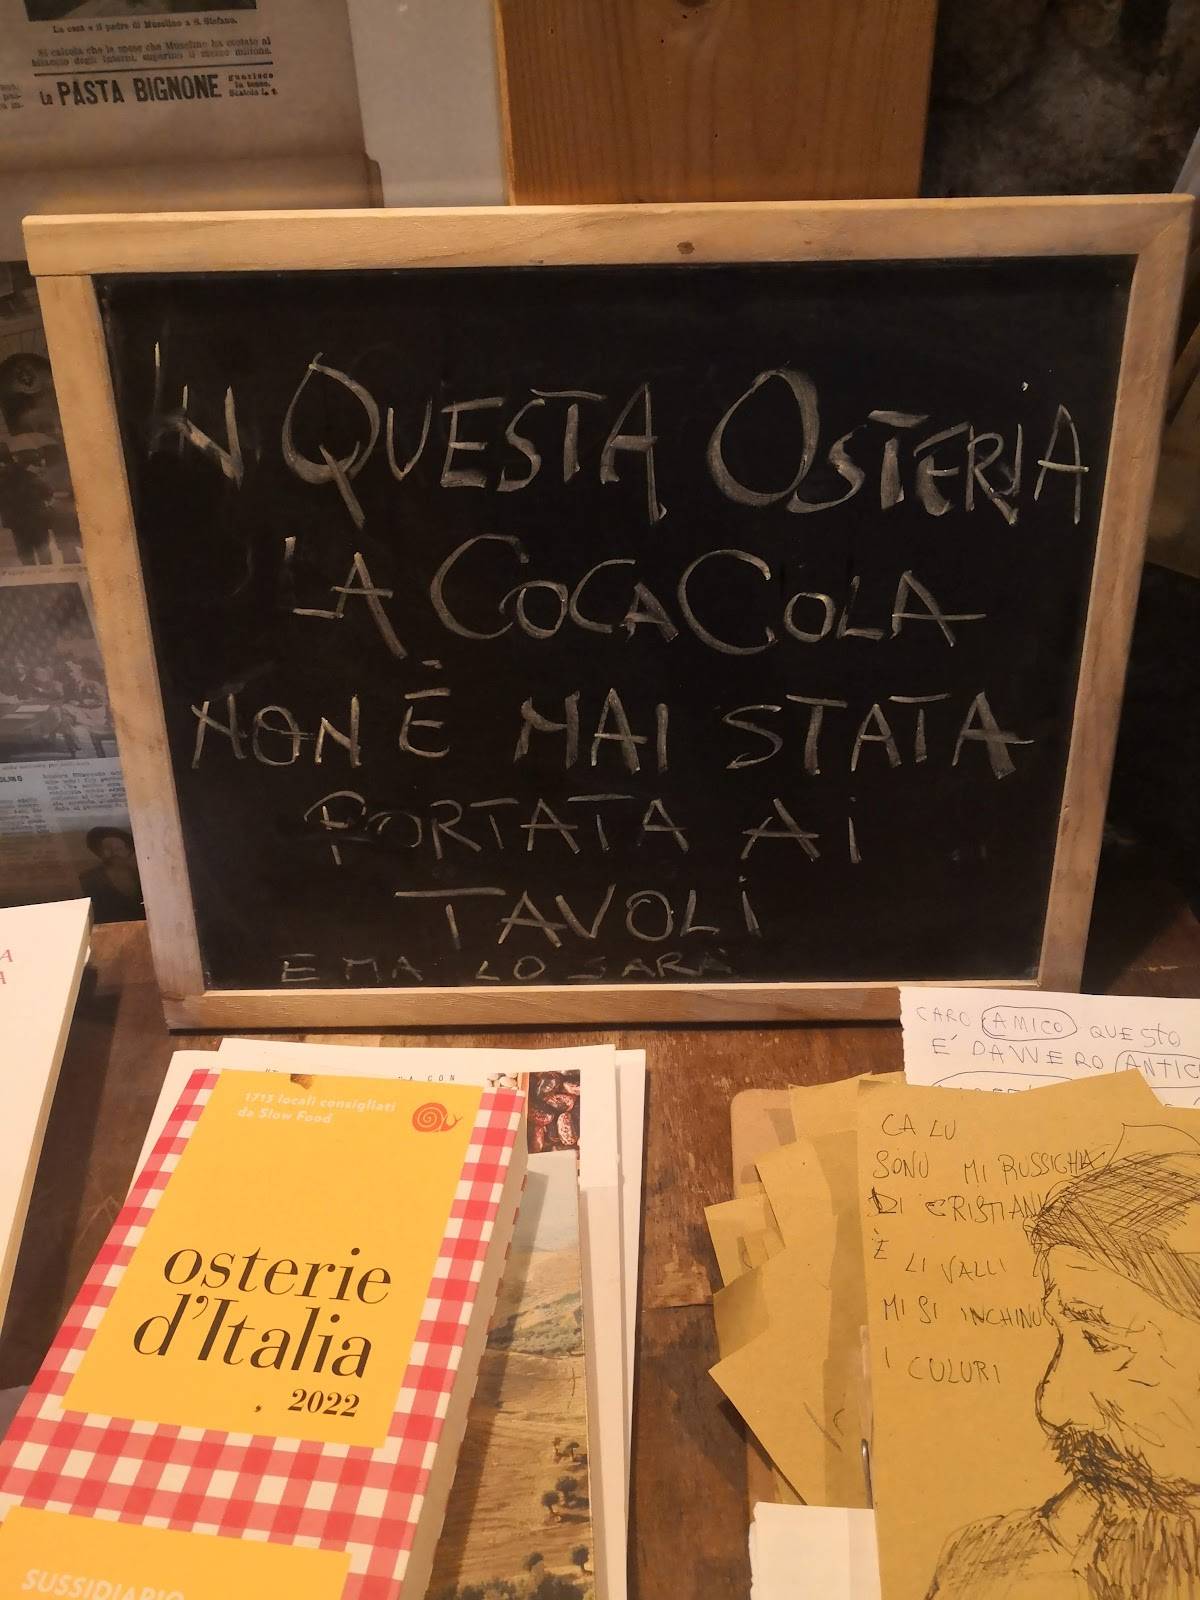 La casa e il padre di Musolino a S. Stefano.
Si calcola che le spese che Musolino ha costato al
bilancio degli Interni, superino il mezzo milione.
La PASTA BIGNONE guarisce
la tosse.
Scatola L. 1
IN QUESTA OSTERIA
LA COCA COLA
NON È MAI STATA
PORTATA AI
TAVOLI
E MA LO SARÀ
CARO AMICO QUESTO
E' DAVVERO ANTICO
1715 locali consigliati
da Slow Food
osterie
d'Italia
2022
SUSSIDIARIO
CA LU
SONU MI RUSSIGHIA
DI CRISTIANI
E LI VALLI
MI SI INCHINU
I CULURI